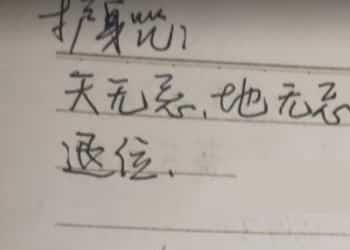 护身咒:
天无忌,地无忌
退位.